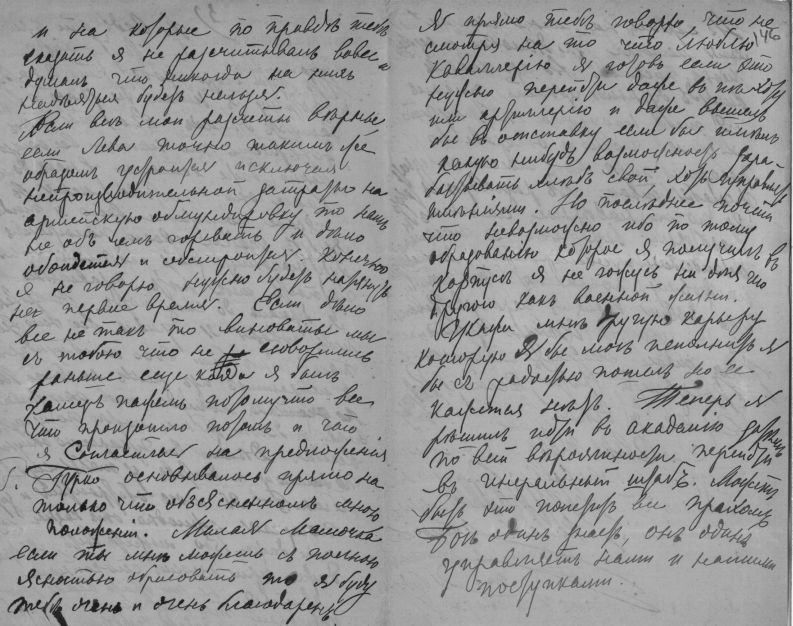 и на которые по правдѣ тебѣ
сказать я не разсчитывалъ вовсе и
думалъ что никогда на нихъ
надѣяться будетъ нельзя.
Если всѣ мои разсчеты вѣрны
если Лева точно такимъ же
образомъ устроится исключая
непроизводительной затраты на
армейскую обмундировку то намъ
не объ чемъ горевать и дѣло
обойдется и обстроится. Конечно
я не говорю нужно будетъ
первое время. Если дѣло
все не такъ то виноваты мы
съ тобою что не сговорились
раньше еще когда я былъ
камеръ пажемъ потому что все
что произошло потомъ и что
я согласился на предложенія
Гурко основывалось прямо на
только что объясненномъ мною
положеніи. Милая Мамочка
если ты мнѣ можешь съ полною
ясностью обрисовать то я буду
тебѣ очень и очень благодаренъ
146
Я прямо тебѣ говорю что не
смотря на то что люблю
Кавалерію я готовъ если это
нужно перейти даже въ пѣхоту
или артиллерію и даже вышелъ
бы въ отставку если бы имѣлъ
какую нибудь возможность зара-
батывать хлѣбъ свой хоть
имѣніями. Но послѣднее почти
что невозможно ибо по тому
образованію которое я получилъ въ
корпусѣ я не гожусь ни для чего
другого какъ военной жизни.
Укажи мнѣ другую карьеру
которую я бы могъ исполнить я
бы съ радостью пошелъ но ее
кажется нѣтъ. Теперь я
рѣшилъ идти въ академію
по всей вѣроятности перейти
въ генеральный штабъ. Можетъ
быть это теперь все прахомъ
Богъ одинъ знаетъ, онъ одинъ
управляетъ нами и нашими
поступками.